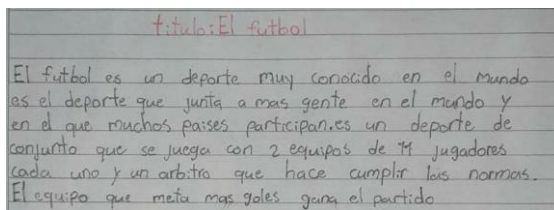 titulo: El futbol
El futbol es un deporte muy conocido en el mundo
es el deporte que junta a mas gente en el mundo y
en el que muchos paises participan.es un deporte de
conjunto que se juega con 2 equipos de 11 jugadores
cada uno y un arbitro que hace cumplir las normas.
El equipo que meta mas goles gana el partido